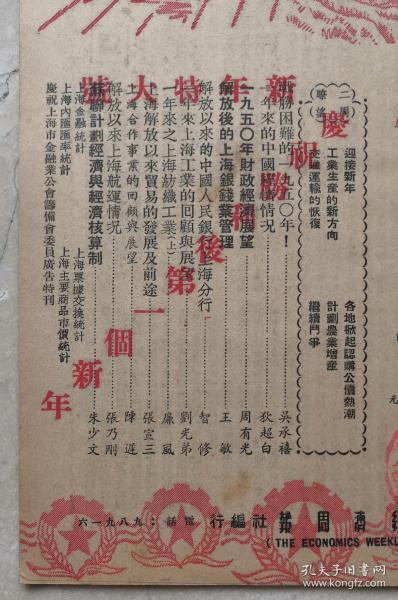 新年特大號
慶祝勝利後第一個新年
二周瞭望
迎接新年
各地掀起認購公債熱潮
工業生產的新方向
計劃農業增產
交通運輸的恢復
繼續鬥爭
戰勝困難的一九五〇年！……吳承禧
一年來的中國經濟情況……狄超白
一九五〇年財政經濟展望……周有光
解放後的上海銀錢業管理……王敏
解放以來的中國人民銀行上海分行……智修
一年來上海工業的回顧與展望……劉光弟
一年來之上海紡織工業(上)……廉風
上海解放以來貿易的發展及前途……張宣三
上海合作事業的回顧與展望……陳遲
解放以來上海航運情況……張乃剛
蘇聯計劃經濟與經濟核算制……朱少文
上海金融統計 上海票據交換統計
上海內匯匯率統計 上海主要商品市價統計
慶祝上海市金融業公會籌備會委員廣告特刊
元
濟周報社編行 電話：九八九一六
(THE ECONOMICS WEEKL
孔夫子旧书网
www.kongfz.com